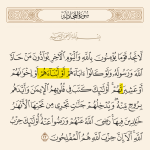 سورة المجادلة
لَّا تَجِدُ قَوْمًا يُؤْمِنُونَ بِٱللَّهِ وَٱلْيَوْمِ ٱلْءَاخِرِ يُوَآدُّونَ مَنْ حَآدَّ
ٱللَّهَ وَرَسُولَهُۥ وَلَوْ كَانُوٓا۟ ءَابَآءَهُمْ أَوْ أَبْنَآءَهُمْ أَوْ إِخْوَٰنَهُمْ
أَوْ عَشِيرَتَهُمْ أُو۟لَٰٓئِكَ كَتَبَ فِى قُلُوبِهِمُ ٱلْإِيمَٰنَ وَأَيَّدَهُم
بِرُوحٍ مِّنْهُ وَيُدْخِلُهُمْ جَنَّٰتٍ تَجْرِى مِن تَحْتِهَا ٱلْأَنْهَٰرُ
خَٰلِدِينَ فِيهَا رَضِىَ ٱللَّهُ عَنْهُمْ وَرَضُوا۟ عَنْهُ أُو۟لَٰٓئِكَ حِزْبُ
ٱللَّهِ أَلَآ إِنَّ حِزْبَ ٱللَّهِ هُمُ ٱلْمُفْلِحُونَ